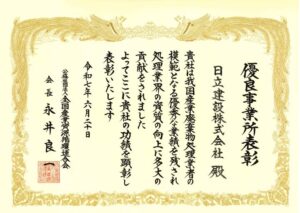 優良事業所表彰
日立建設株式会社 殿
貴社は我国産業廃棄物処理業者の
模範となる優秀な業績を残され
処理業界の資質の向上に多大の
貢献をされました
よってここに貴社の功績を顕彰し
表彰いたします
令和七年六月二十日
公益社団法人全国産業資源循環連合会
会長 永井良一